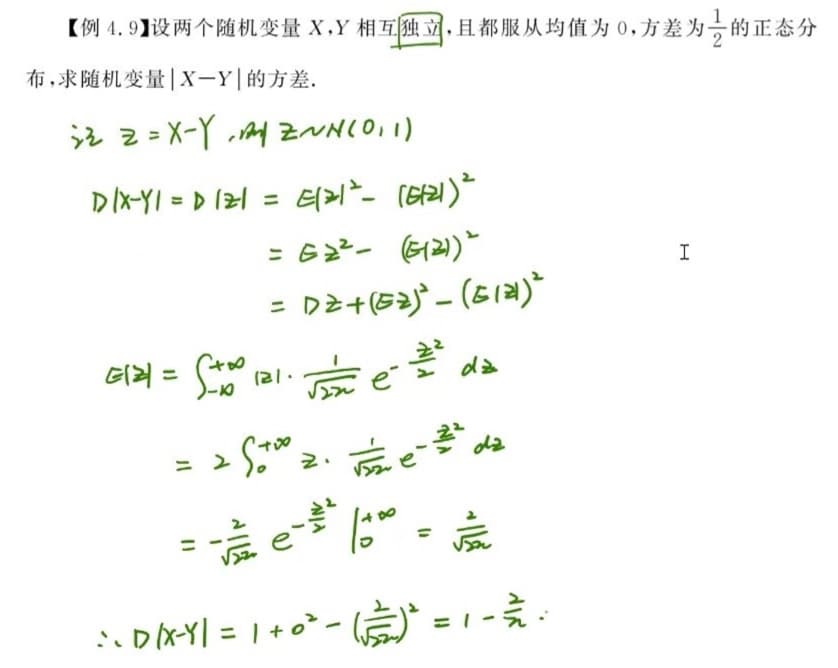 【例 4.9】设两个随机变量 X,Y 相互独立,且都服从均值为 0,方差为 1/2 的正态分
布,求随机变量|X-Y|的方差.
记 Z=X-Y,则 Z~N(0,1)
D|X-Y| = D|Z| = E|Z|² - (E|Z|)²
= EZ² - (E|Z|)²
= DZ+(EZ)² - (E|Z|)²
E|Z| = ∫_{-∞}^{+∞} |z|· 1/√(2π) e^{-z²/2} dz
= 2∫_0^{+∞} z· 1/√(2π) e^{-z²/2} dz
= -2/√(2π) e^{-z²/2} |_0^{+∞} = 2/√(2π)
∴ D|X-Y| = 1+0² - (2/√(2π))² = 1 - 2/π.